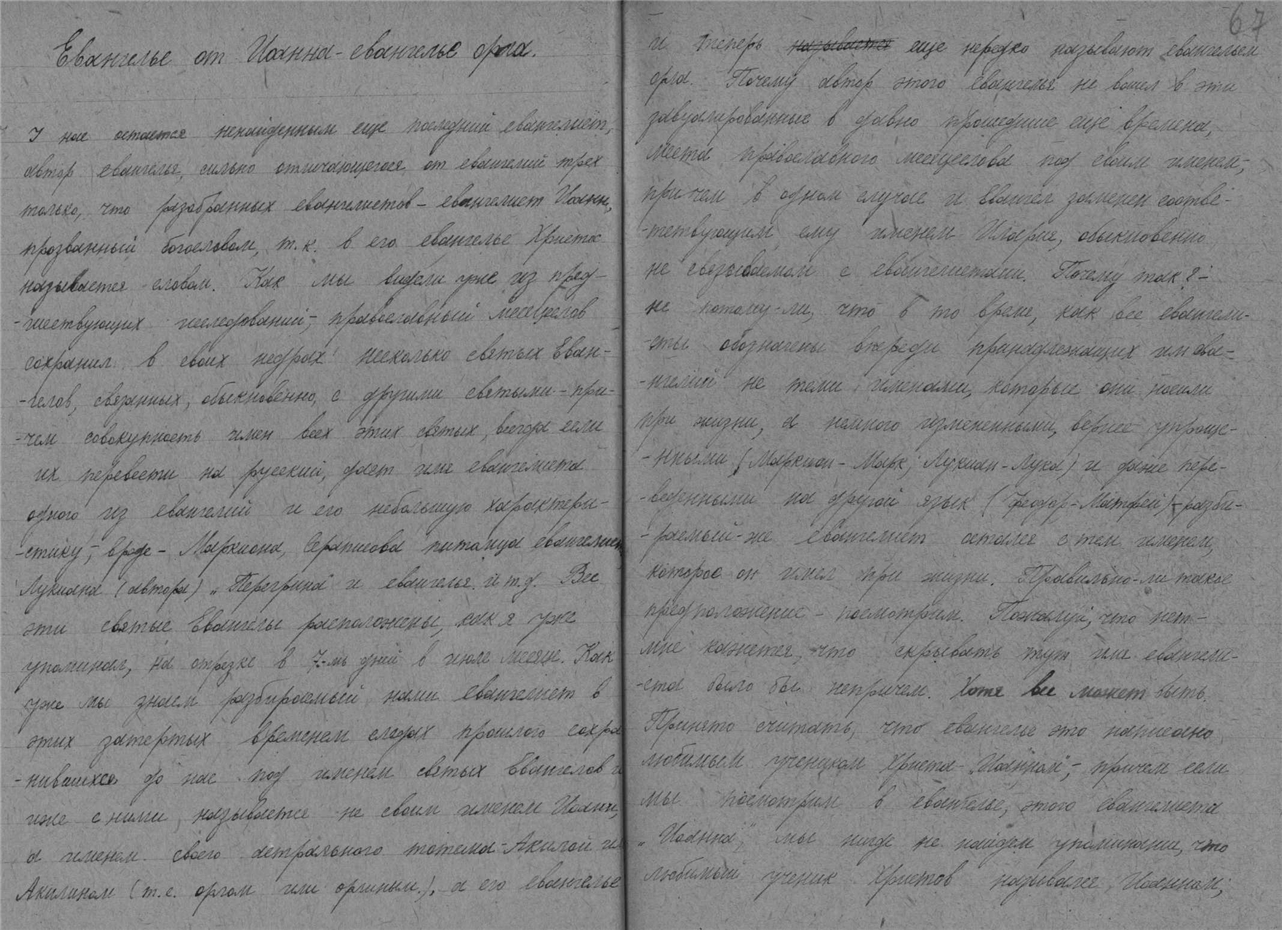 Евангелье от Иоанна - евангелье орла.
У нас остается ненайденным еще последний евангелист,
автор евангелья, сильно отличающегося от евангелий трех
только, что разобранных евангелистов - евангелист Иоанн,
прозванный богословом, т.к. в его евангелье Христос
называется словом. Как мы видели уже из пред-
-шествующих исследований, - православный месяцеслов
сохранил в своих недрах несколько святых Еван-
-гелов, связанных, обыкновенно, с другими святыми - при-
-чем совокупность имен всех этих святых, всегда если
их перевести на русский, дает имя евангелиста
одного из евангелий и его небольшую характери-
-стику; - вроде - Маркиона, Сераписова питомца евангелие
Лукиана (автора) „Перегрина" и евангелья и т.д. Все
эти святые Евангелы расположены, как я уже
упоминал, на отрезке в 7-мь дней в июле месяце. Как
уже мы знаем разбираемый нами евангелист в
этих затертых временем следах прошлого сохра
-нившихся до нас под именем святых Евангелов и
иже с ними, называется не своим именем Иоанн,
а именем своего астрального тотема - Акилой или
Акилином (т.е. орлом или орлиным), а его евангелье
67
и теперь называется еще нередко называют евангельем
орла. Почему автор этого евангелья не вошел в эти
завуалированные в давно прошедшие еще времена,
места православного месяцеслова под своим именем,
причем в одном случае и Евангел заменен соотве-
-тствующим ему именем Илария, обыкновенно
не связываемом с евангелистами. Почему так? -
не потому-ли, что в то время, как все евангели-
-сты обозначены впереди принадлежащих им ева-
-нгелий не теми именами, которые они носили
при жизни, а немного измененными, вернее упроще-
-нными (Маркион - Марк; Лукиан - Лука) и даже пере-
-веденными на другой язык (Феодор - Матвей) - разби-
-раемый-же евангелист остался с тем именем,
которое он имел при жизни. Правильно-ли такое
предположение - посмотрим. Пожалуй, что нет -
мне кажется, что скрывать тут имя евангели-
-ста было бы непричем. Хотя все может быть.
Принято считать, что евангелье это написано
любимым учеником Христа - Иоанном, - причем если
мы посмотрим в евангелье, этого евангелиста
„Иоанна", мы нигде не найдем упоминания, что
любимый ученик Христов назывался Иоанном;